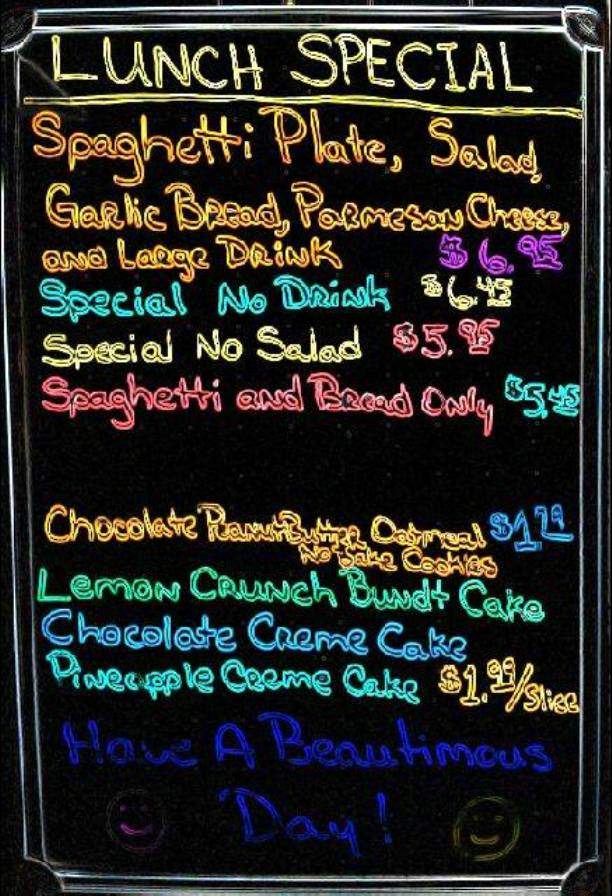 LUNCH SPECIAL
Spaghetti Plate, Salad,
Garlic Bread, Parmesan Cheese,
and Large Drink $6.95
Special No Drink $6.45
Special No Salad $5.95
Spaghetti and Bread Only $5.45
Chocolate Peanut Butter Oatmeal $1.29
No Bake Cookies
Lemon Crunch Bundt Cake
Chocolate Creme Cake
Pineapple Creme Cake $1.99/Slice
Have A Beautimous
Day!